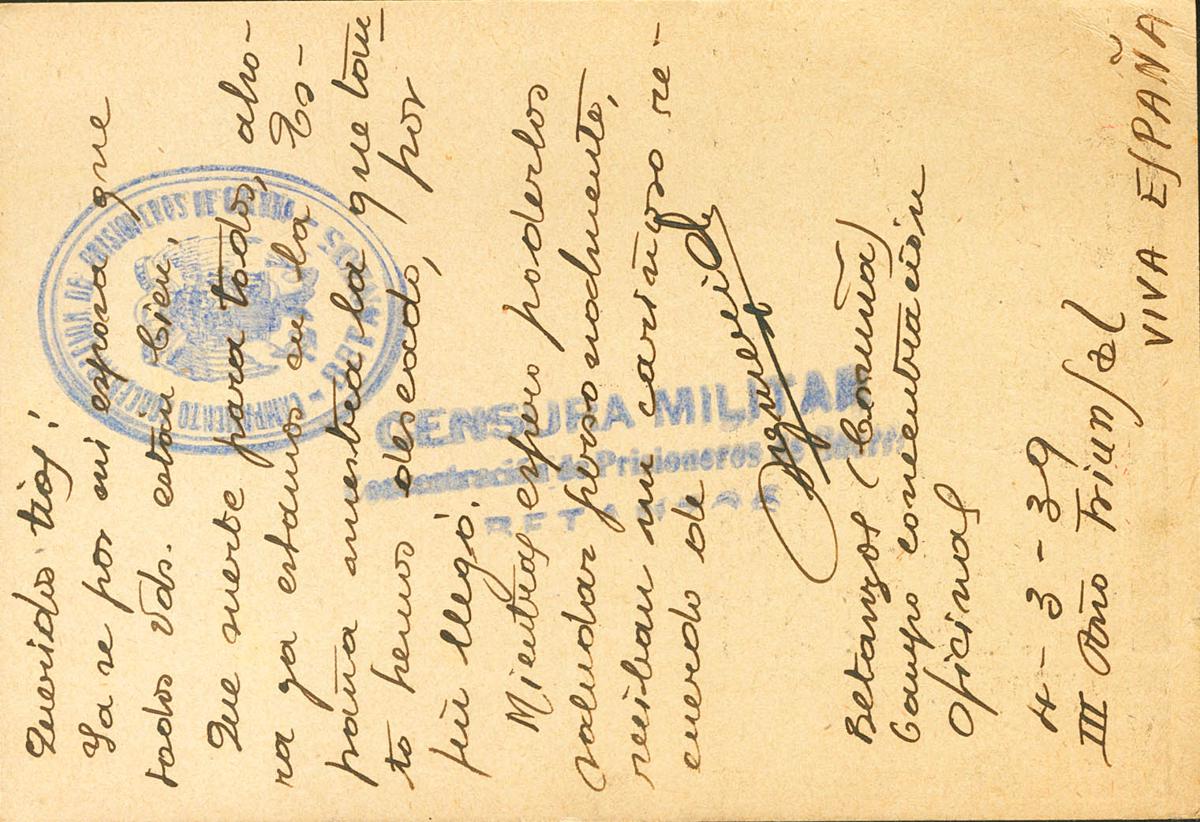 Queridos tios!
Ya se por mi esposa que
todos Vds. estan bien,
Que suerte para todos, aho-
ra ya estamos en la Es-
paña nuestra la que tan-
to hemos deseado, por
fin llegó.
Mientras espero poderlos
saludar personalmente,
reciban un cariñoso re-
cuerdo de
Betanzos (Coruña)
Campo concentración
Oficinas
4-3-39
III Año Triunfal
VIVA ESPAÑA
CAMPAMENTO CONCENTRACION DE PRISIONEROS DE GUERRA
- BETANZOS -
CENSURA MILITAR
Concentración de Prisioneros de Guerra
BETANZOS